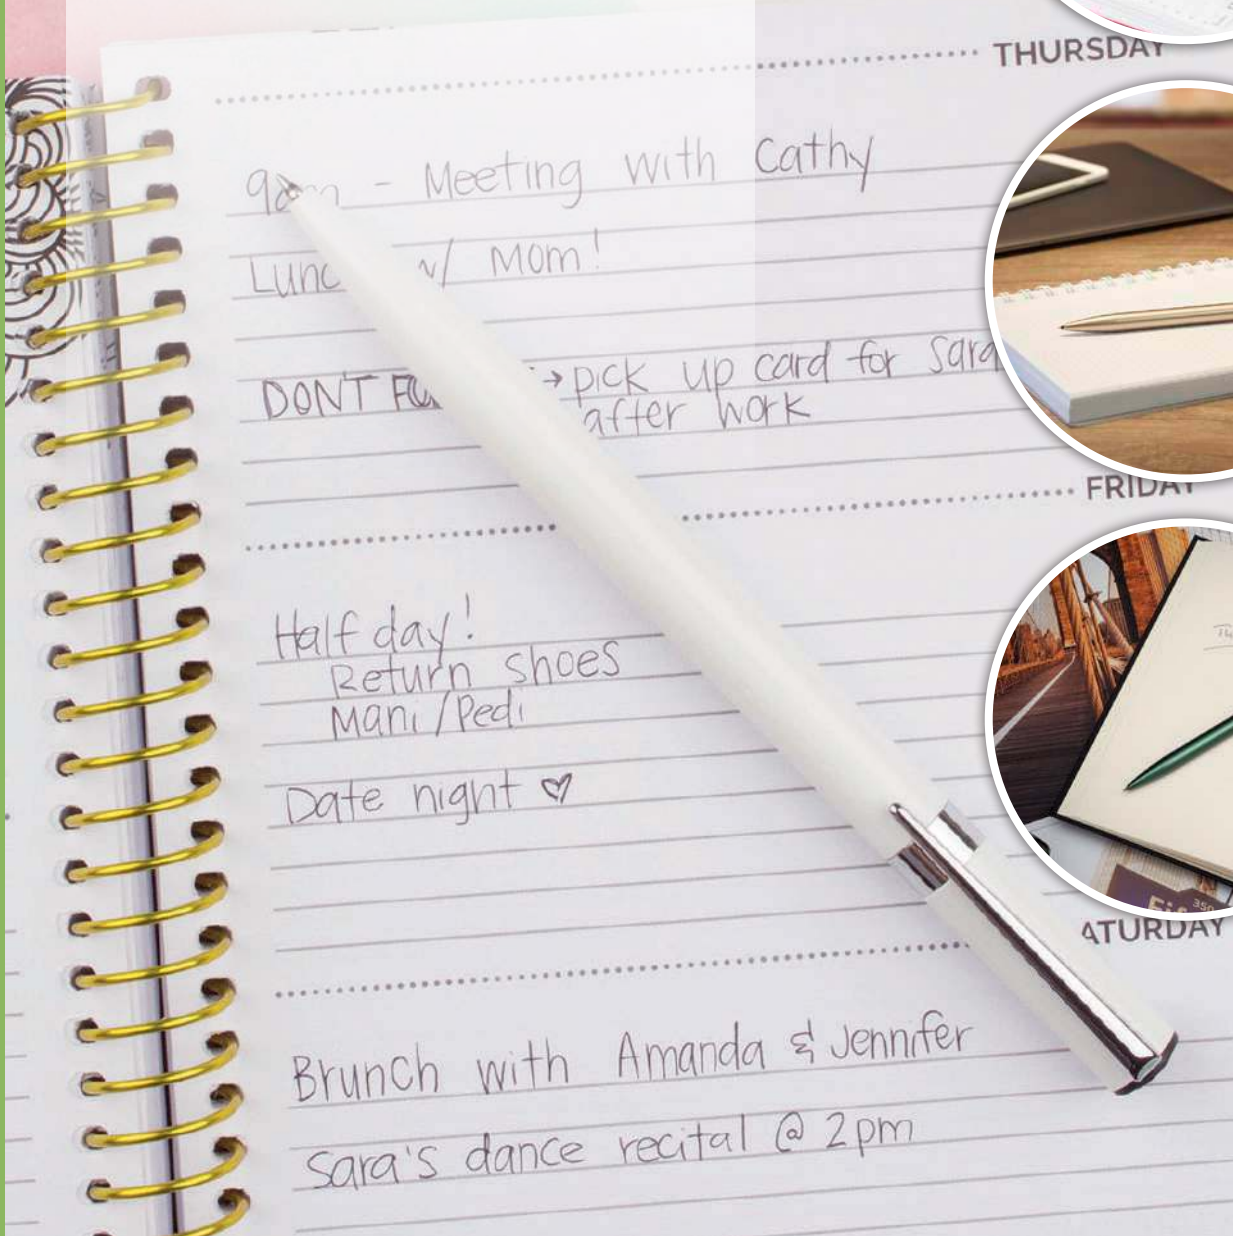 THURSDAY
9am - Meeting with Cathy
w/ Mom!
DON'T → pick up card for Sara
after work
FRIDAY
Half day!
Return shoes
Mani/Pedi
Date night ♡
Brunch with Amanda & Jennifer
Sara's dance recital @ 2pm